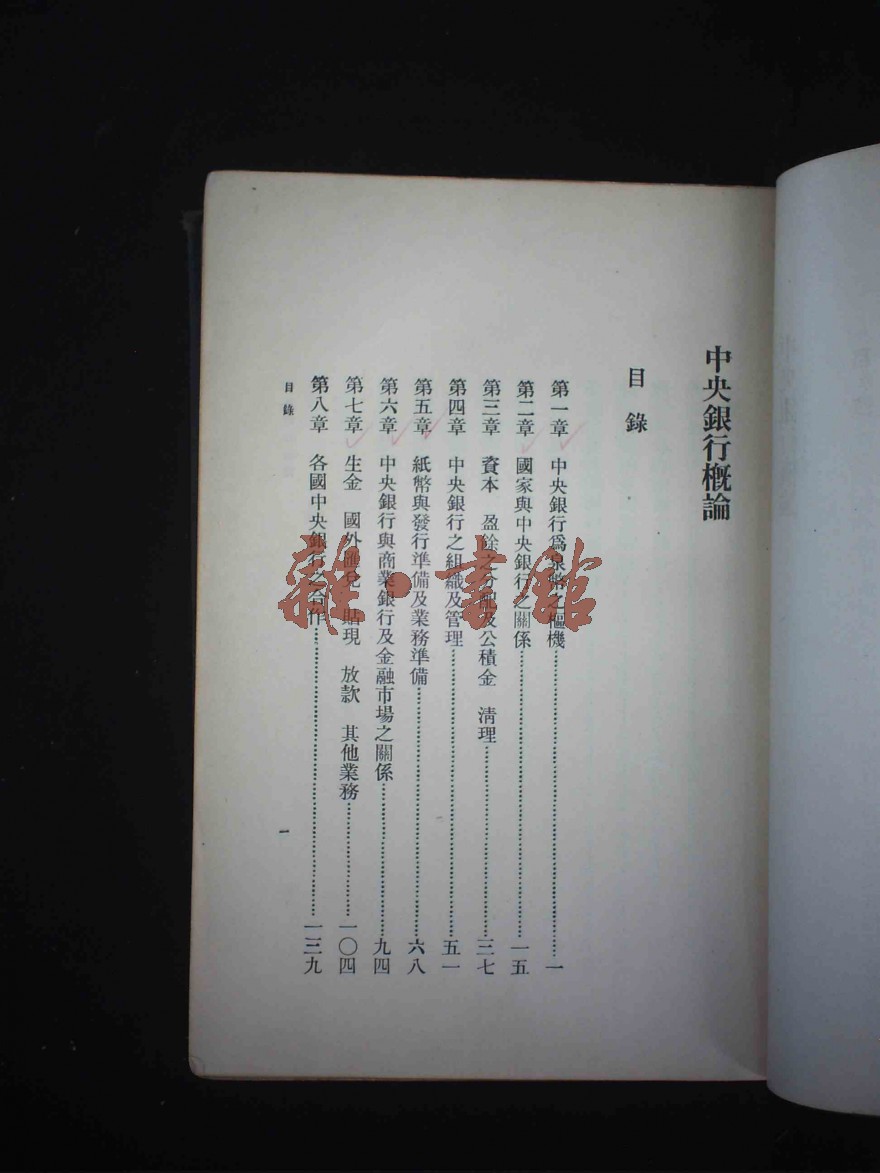 中央銀行概論
目錄
第一章 中央銀行爲泉幣之樞機…………一
第二章 國家與中央銀行之關係…………一五
第三章 資本 盈餘之分配及公積金 清理…………三七
第四章 中央銀行之組織及管理…………五一
第五章 紙幣與發行準備及業務準備…………六八
第六章 中央銀行與商業銀行及金融市場之關係…………九四
第七章 生金 國外匯兌 貼現 放款 其他業務…………一〇四
第八章 各國中央銀行之合作…………一三九
目錄
一
雜·書館